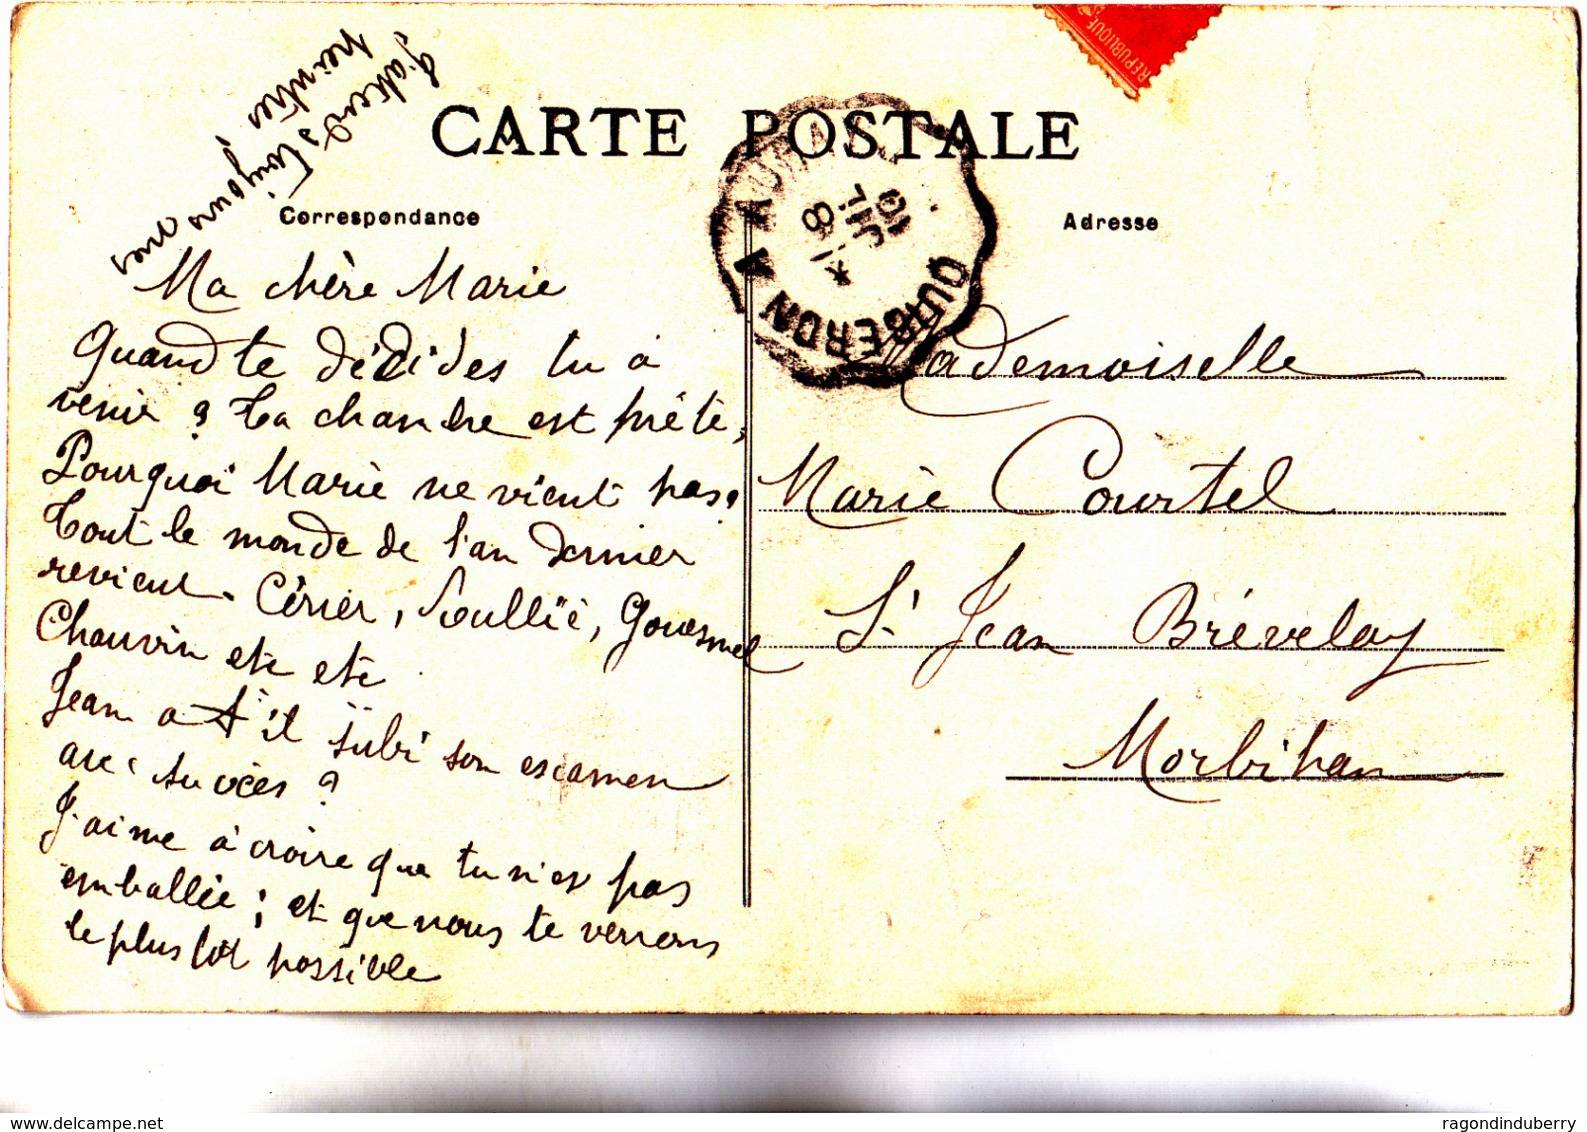 J'attends toujours mes
peintres,
CARTE POSTALE
Correspondance
Adresse
REPUBLIQUE
QUIBERON A AURAY
8
JUIL
10
Ma chère Marie
Quand te décides tu à
venir ? Ta chambre est prête,
Pourquoi Marie ne vient pas ?
Tout le monde de l'an dernier
revient. Cérier, Soullïé, Gouesmel
Chauvin etc etc.
Jean a t'il subi son examen
avec succès ?
J'aime à croire que tu n'es pas
emballée ; et que nous te verrons
le plus tôt possible
Mademoiselle
Marie Courtel
St Jean Brévelay
Morbihan
delcampe.net
ragondinduberry